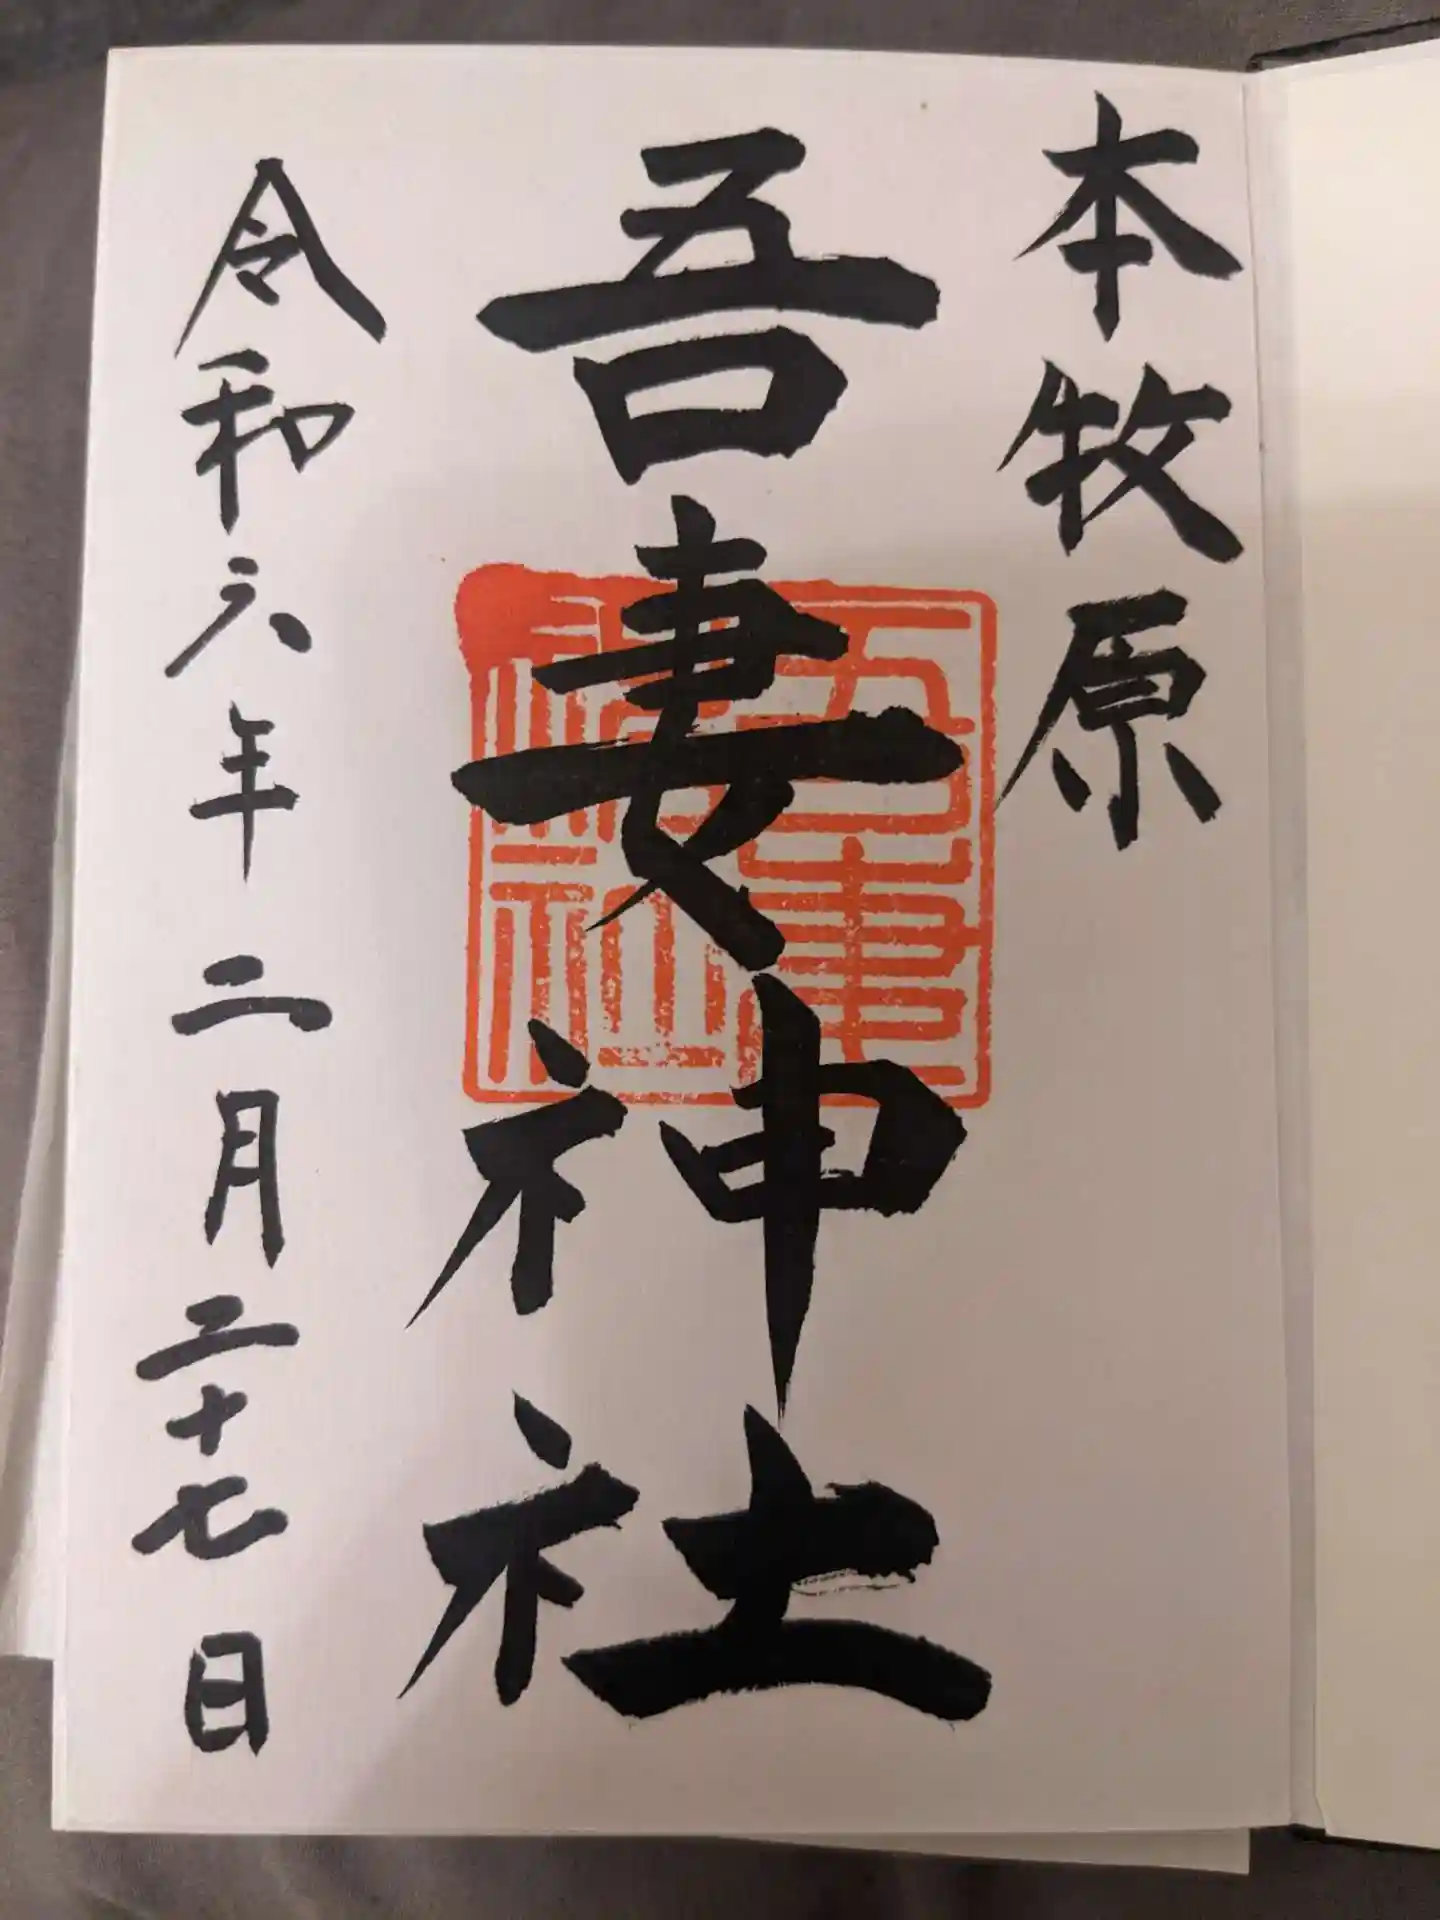 本牧原
吾妻神社
吾妻神社
令和六年二月二十七日